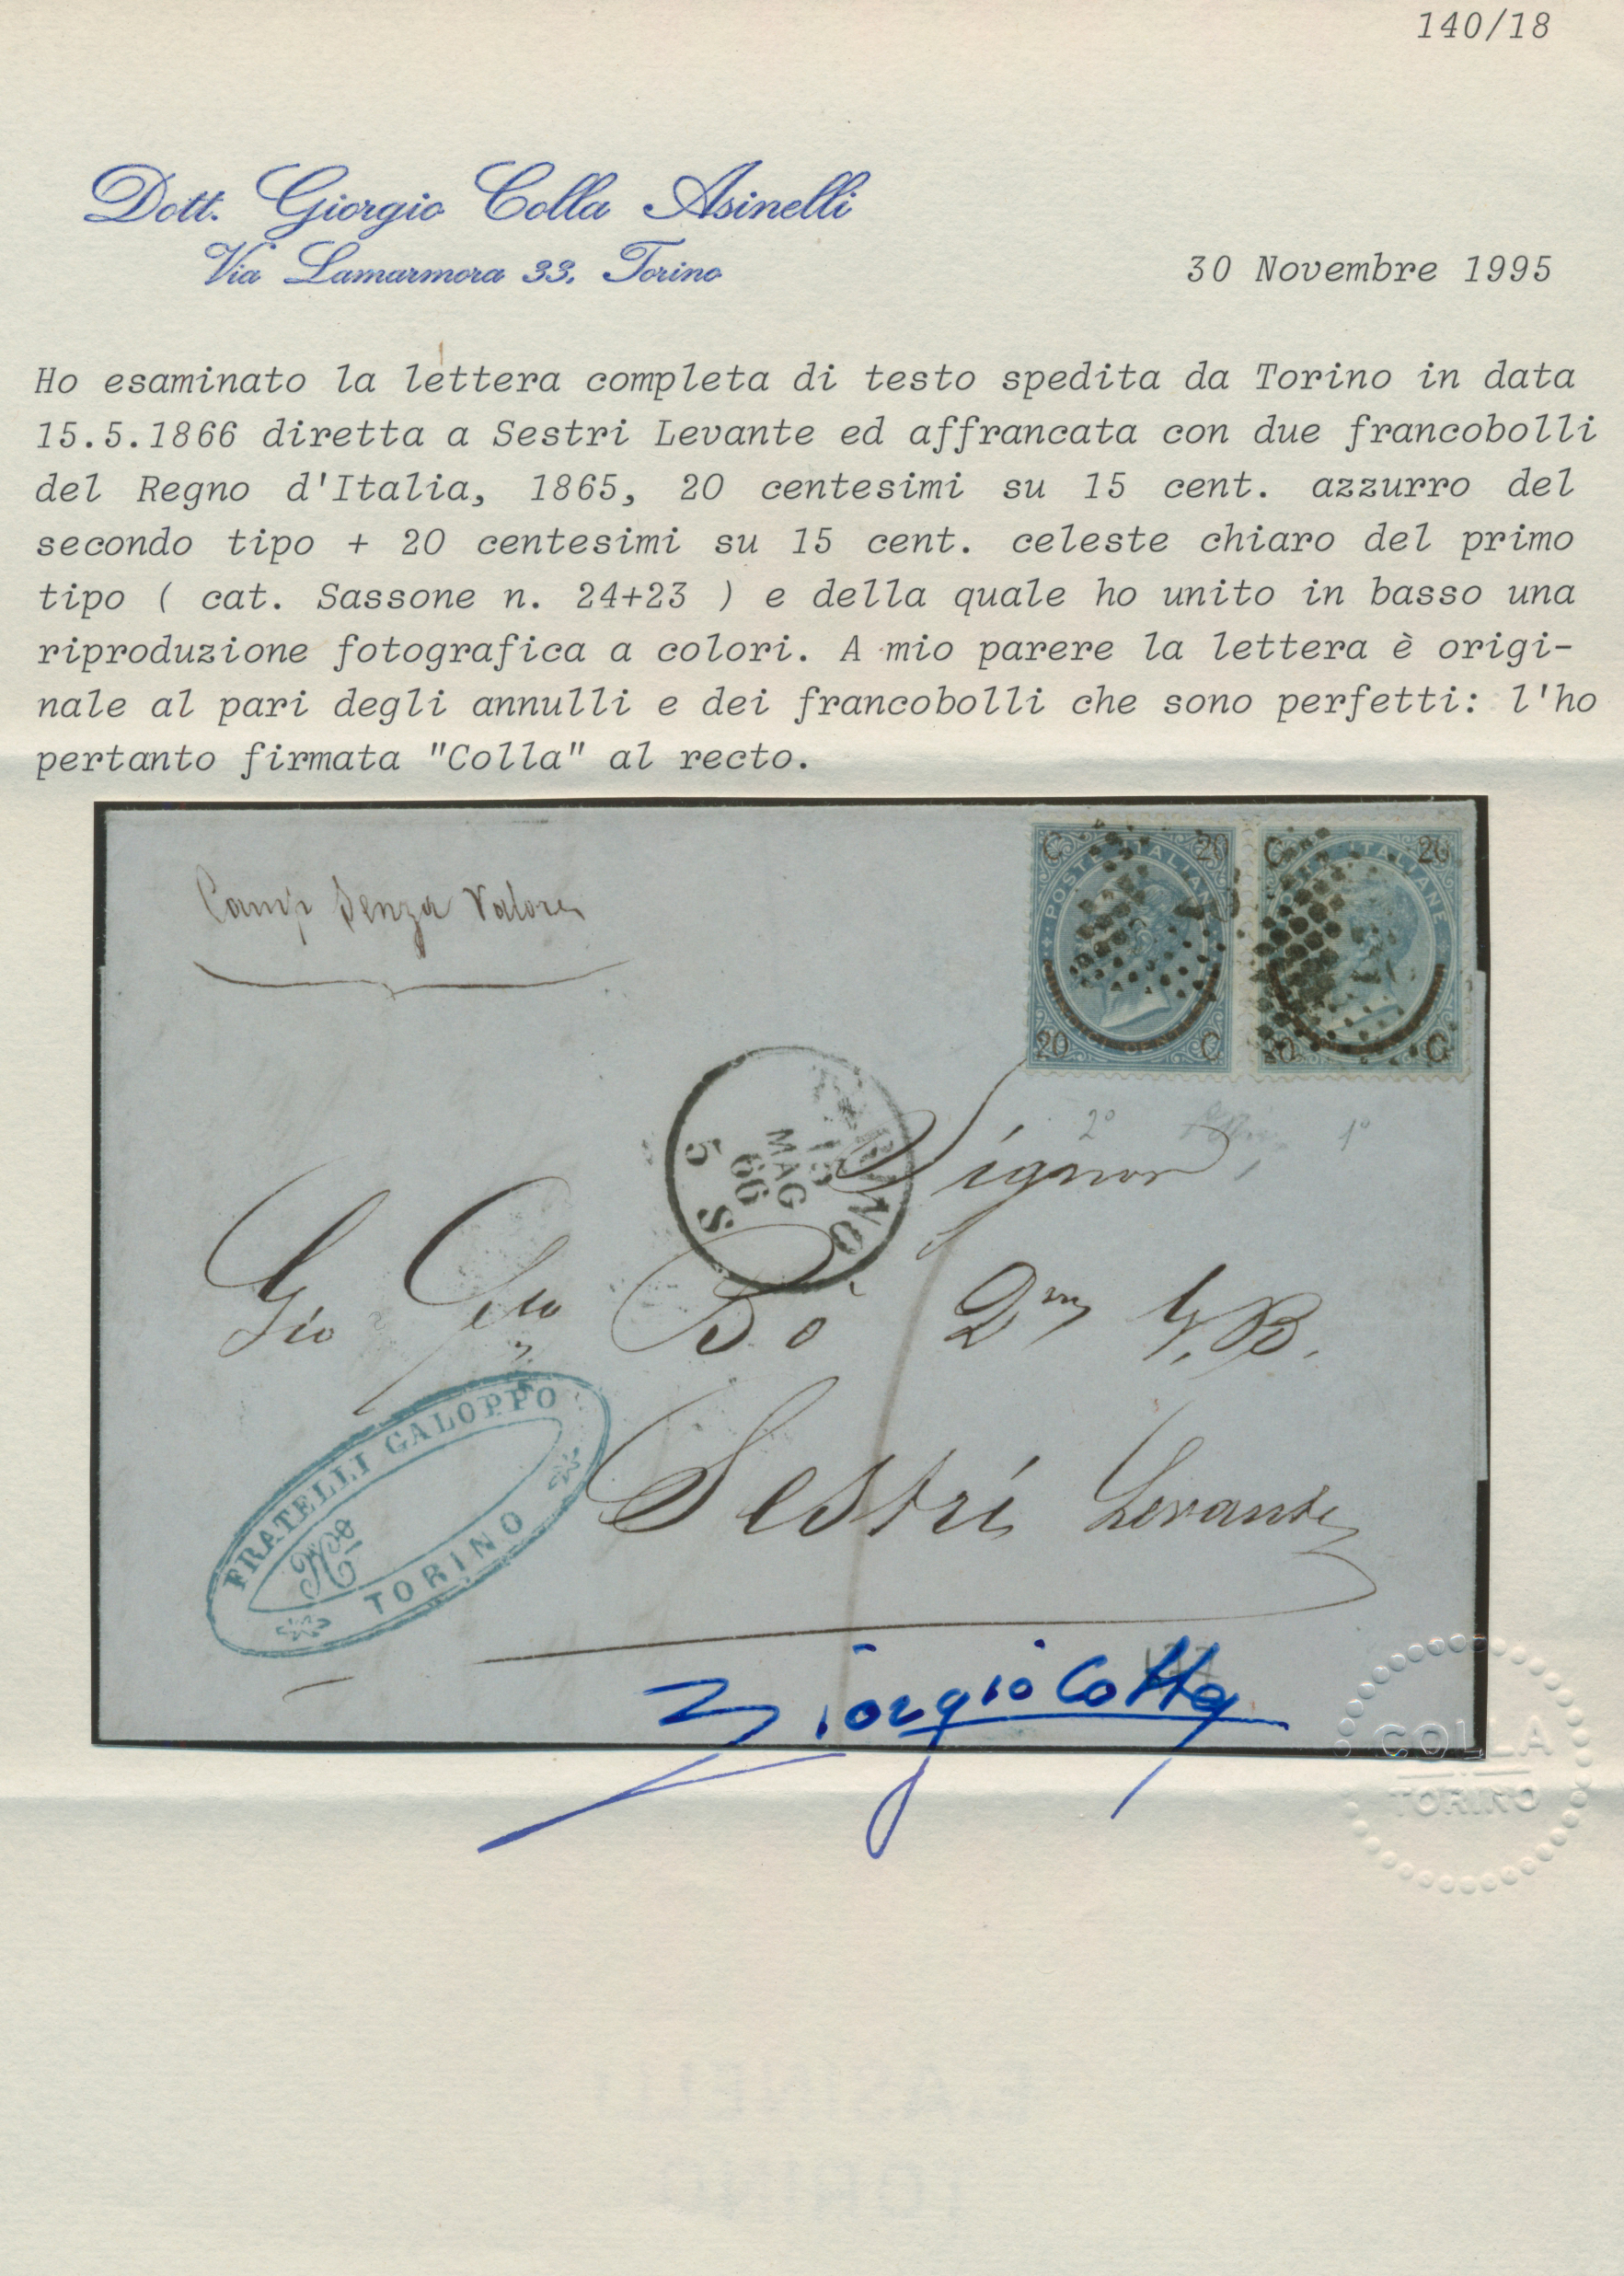 140/18
Dott. Giorgio Colla Asinelli
Via Lamarmora 33. Torino
30 Novembre 1995
Ho esaminato la lettera completa di testo spedita da Torino in data
15.5.1866 diretta a Sestri Levante ed affrancata con due francobolli
del Regno d'Italia, 1865, 20 centesimi su 15 cent. azzurro del
secondo tipo + 20 centesimi su 15 cent. celeste chiaro del primo
tipo ( cat. Sassone n. 24+23 ) e della quale ho unito in basso una
riproduzione fotografica a colori. A mio parere la lettera è origi-
nale al pari degli annulli e dei francobolli che sono perfetti: l'ho
pertanto firmata "Colla" al recto.
C 20 C 20
POSTE ITALIANE
20 C 20 C
Senza Valore
2° 1°
TORINO
15
MAG
66
5 S
Signor
Gio Bò Qm G. B.
Sestri Levante
FRATELLI GALOPPO
TORINO
Giorgio Colla
COLLA
TORINO